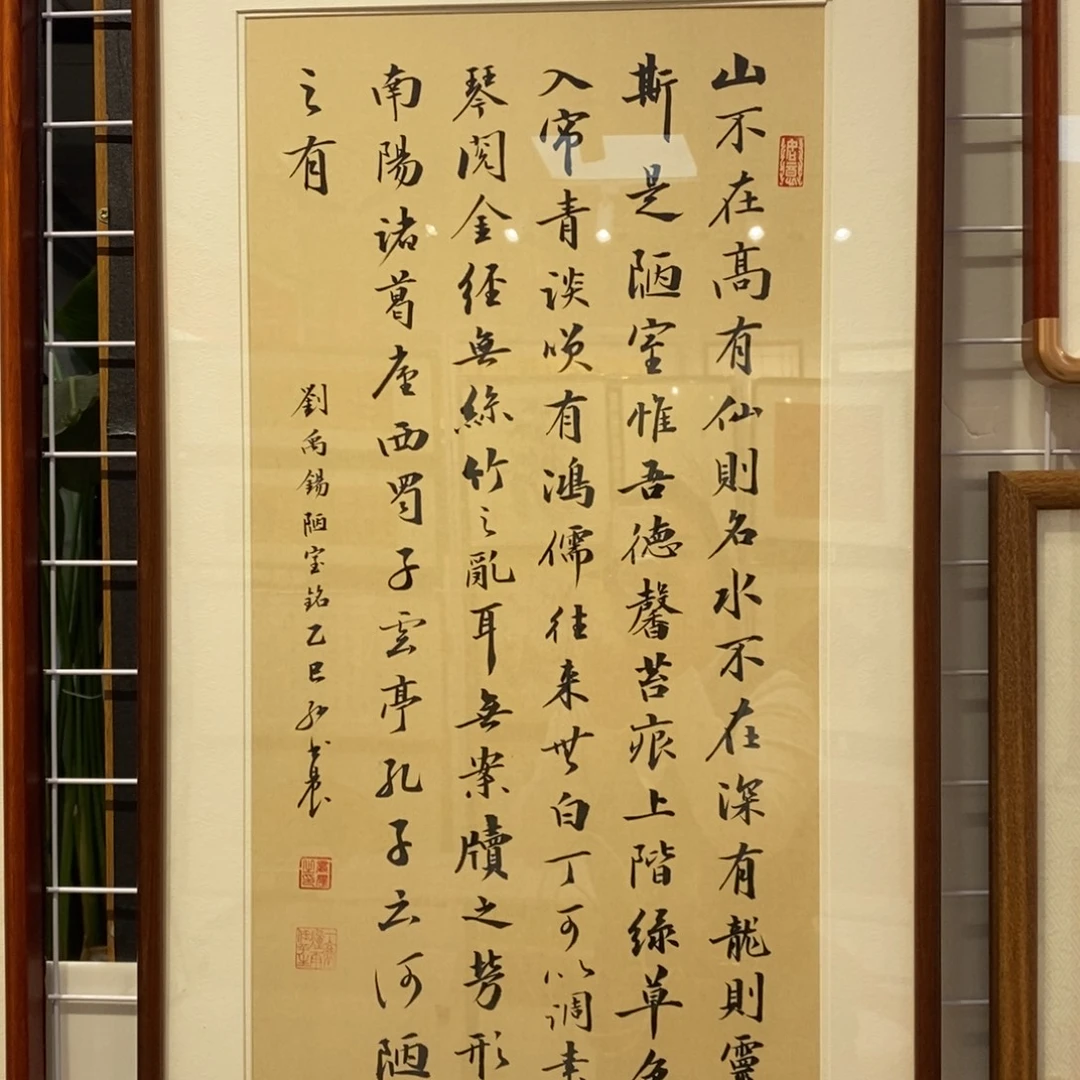 山不在髙有仙則名水不在深有龍則靈
斯是陋室惟吾德馨苔痕上階綠草色
入帘青談笑有鴻儒往来無白丁可以調素
琴閱金經無絲竹之亂耳無案牘之勞形
南陽諸葛廬西蜀子雲亭孔子云何陋
之有
劉禹錫陋室銘乙巳